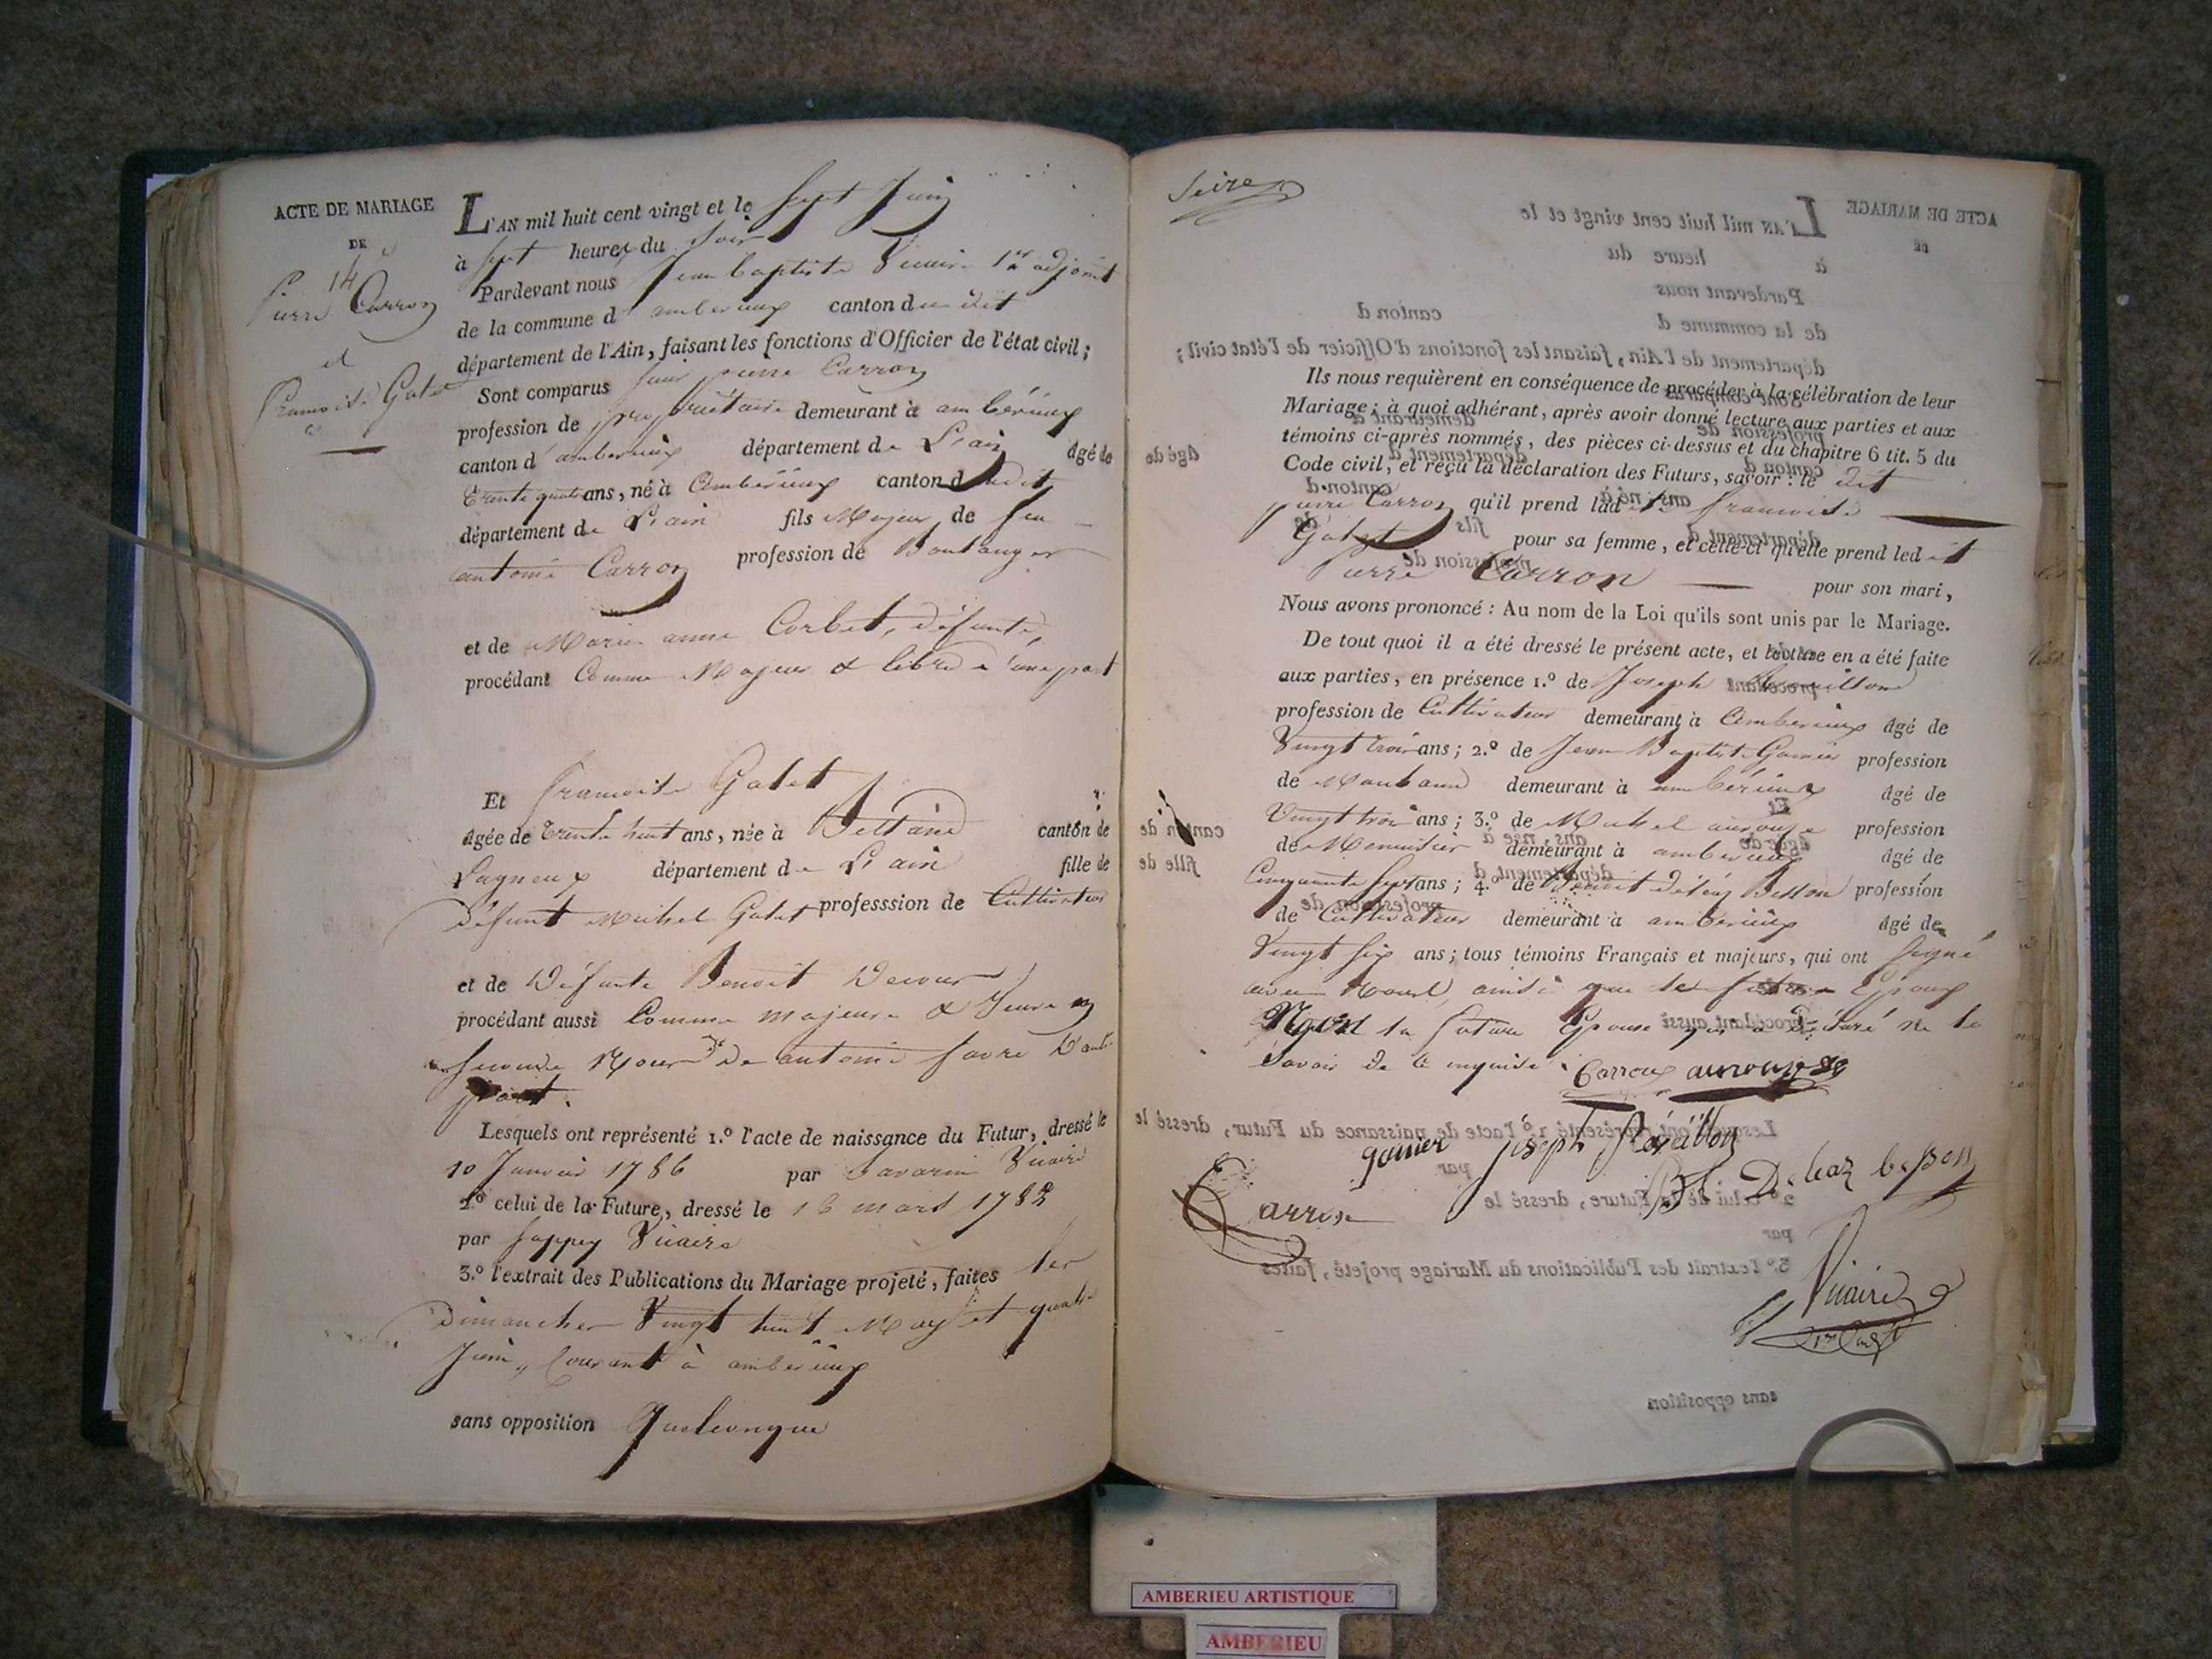 ACTE DE MARIAGE
DE
14
Pierre Carron
et
Francoise Gatet
L'AN mil huit cent vingt et le sept Juin
à sept heures du soir
Pardevant nous Jean Baptiste Vicaire 1er adjoint
de la commune d'amberieux canton du dit
département de l'Ain, faisant les fonctions d'Officier de l'état civil;
Sont comparus pierre Carron
profession de propriétaire demeurant à ambérieux
canton d'amberieux département de L'ain âgé de
Trente quatre ans, né à Ambérieux canton dudit
département de L'ain fils Majeur de feu
antoine Carron profession de Boulanger
et de Marie anne Corbet, défunte,
procédant Comme Majeur & libre d'une part
Et francoise Gatet
âgée de Trente huit ans, née à Bettand canton de
Lagneux département de L'ain fille de
défunt Michel Gatet professsion de Cultivateur
et de Défunte Benoit Decour
procédant aussi Comme majeure & Veuve en
seconde Noces de antoine favre D'autre
part.
Lesquels ont représenté 1.º l'acte de naissance du Futur, dressé le
10 Janvier 1786 par Savarin Vicaire
2.º celui de la Future, dressé le 13 mars 1782
par Sappey Vicaire
3.º l'extrait des Publications du Mariage projeté, faites les
Dimanches Vingt huit May et quatre
Juin, Courant à amberieux
sans opposition Quelconque
Seize
Ils nous requièrent en conséquence de procéder à la célébration de leur
Mariage; à quoi adhérant, après avoir donné lecture aux parties et aux
témoins ci-après nommés, des pièces ci-dessus et du chapitre 6 tit. 5 du
Code civil, et reçu la déclaration des Futurs, savoir: le dit
pierre Carron qu'il prend ladite francoise
Gatet pour sa femme, et celle-ci qu'elle prend ledit
Pierre Carron pour son mari,
Nous avons prononcé: Au nom de la Loi qu'ils sont unis par le Mariage.
De tout quoi il a été dressé le présent acte, et lecture en a été faite
aux parties, en présence 1.º de Joseph
profession de Cultivateur demeurant à Amberieux âgé de
Vingt trois ans; 2.º de Jean Baptiste Garnier profession
de demeurant à ambérieux âgé de
Vingt trois ans; 3.º de Michel aurouse profession
de Menuisier demeurant à amberieux âgé de
Cinquante sept ans; 4.º de Benoit Deléaz Besson profession
de Cultivateur demeurant à ambérieux âgé de
Vingt six ans; tous témoins Français et majeurs, qui ont signé
avec nous, ainsi que le futur Epoux
Non la future Epouse qui a Déclaré ne le
savoir de ce enquise.
Carron aurouse
garnier joseph
Carron
Vicaire